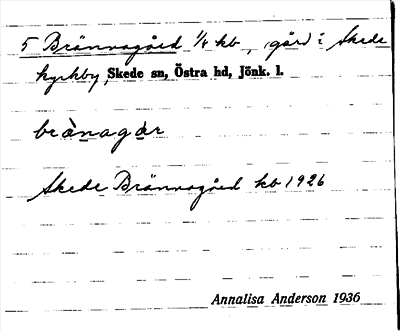 5 Brännagård 1/4 kb, gård i Skede
kyrkby, Skede sn, Östra hd, Jönk. l.
brànagàr
Skede Brännagård kb 1926
Annalisa Anderson 1936